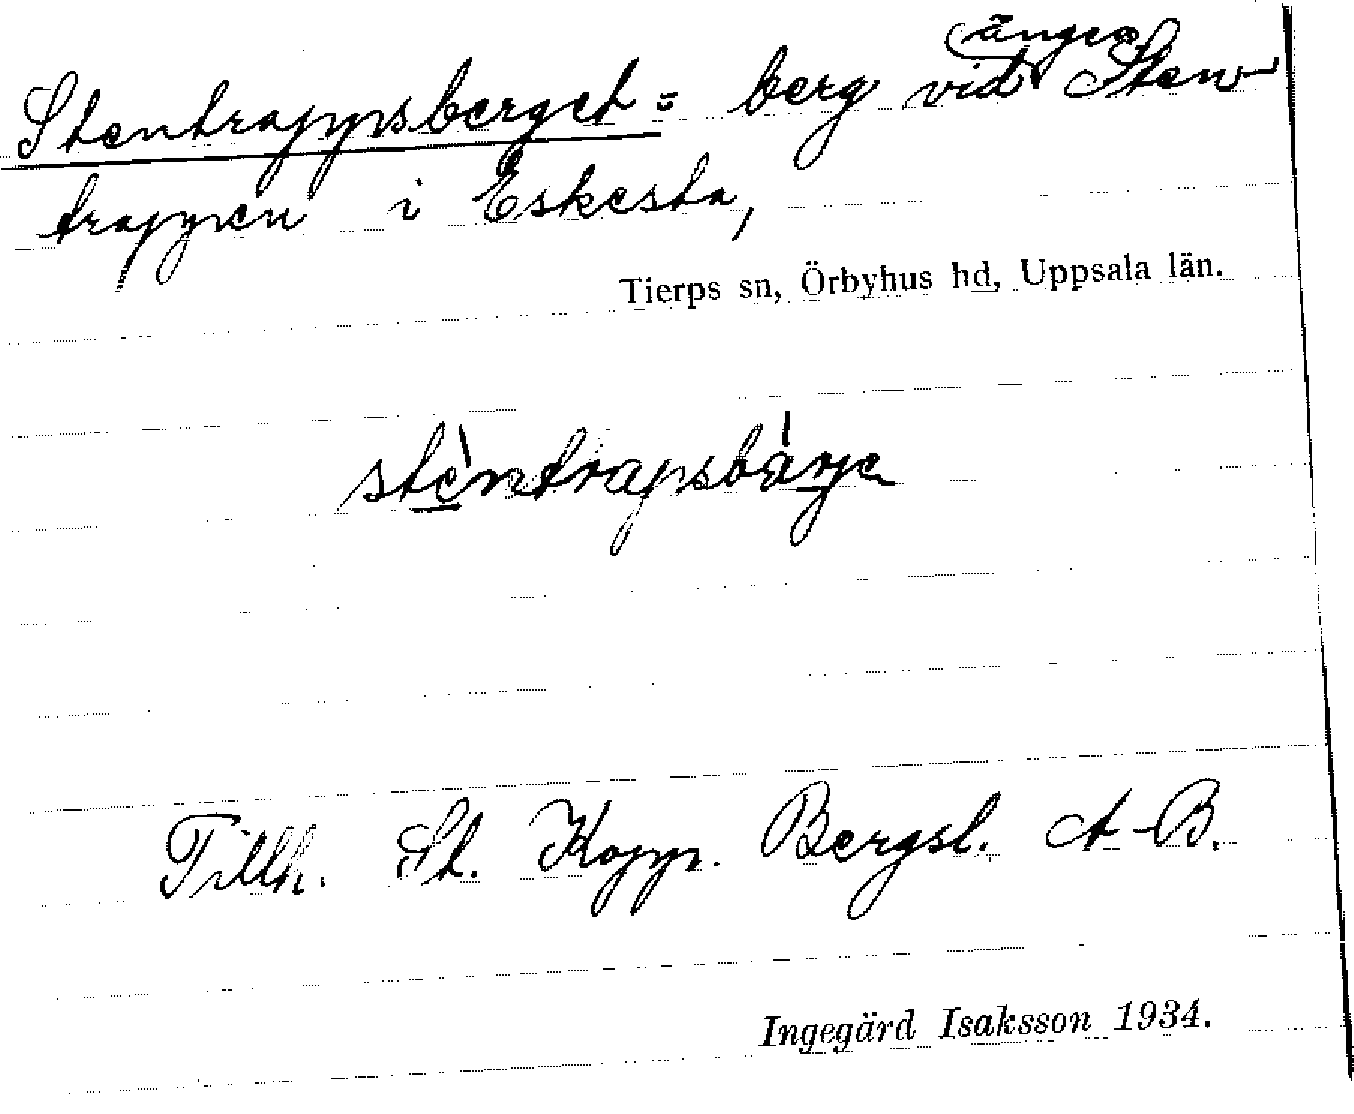 Stentrappsberget = berg vid ängen Sten-
trappen i Eskesta,
Tierps sn, Örbyhus hd, Uppsala län.
stèntrapsbàrjе
Tillh. St. Kopp. Bergsl. A-B.
Ingegärd Isaksson 1934.